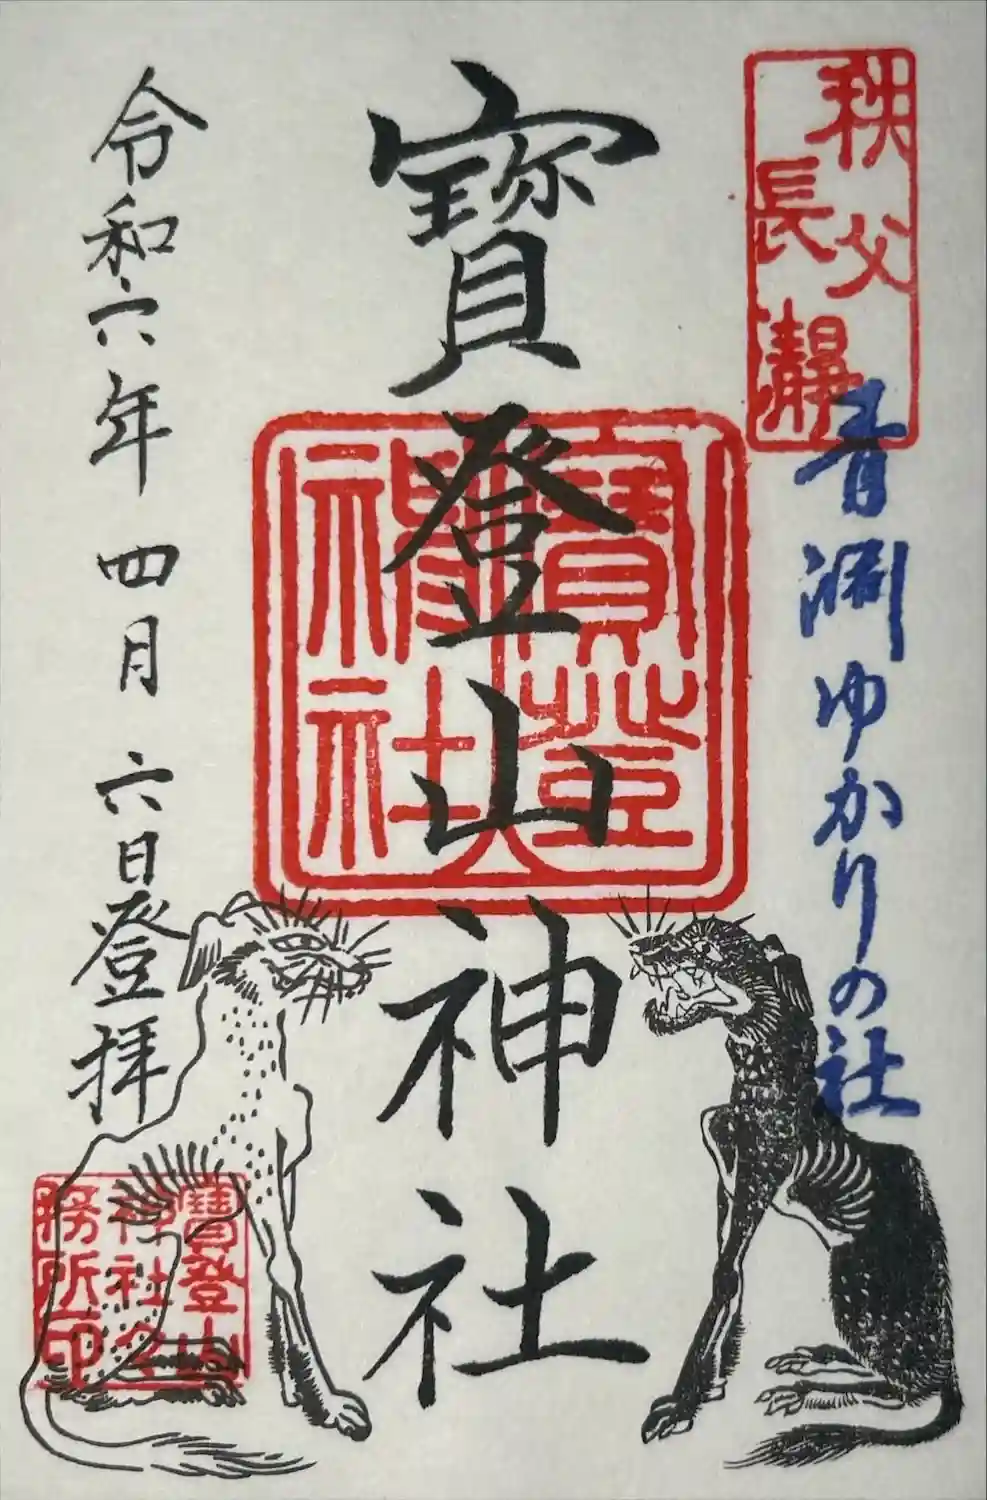 秩父
長瀞
青淵ゆかりの社
寶登山神社
寶登山
神社
令和六年四月六日登拝
寶登山
神社
務所印